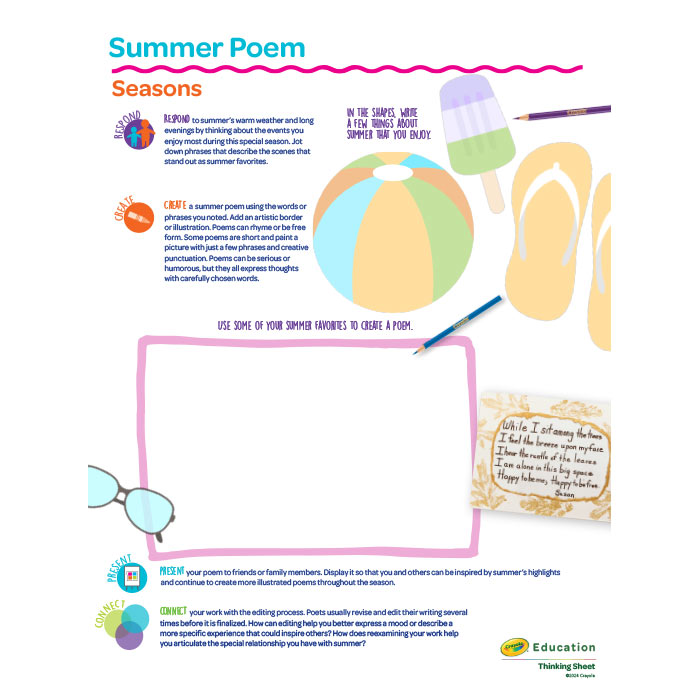 Summer Poem
Seasons
RESPOND
RESPOND to summer's warm weather and long
evenings by thinking about the events you
enjoy most during this special season. Jot
down phrases that describe the scenes that
stand out as summer favorites.
IN THE SHAPES, WRITE
A FEW THINGS ABOUT
SUMMER THAT YOU ENJOY.
CREATE
CREATE a summer poem using the words or
phrases you noted. Add an artistic border
or illustration. Poems can rhyme or be free
form. Some poems are short and paint a
picture with just a few phrases and creative
punctuation. Poems can be serious or
humorous, but they all express thoughts
with carefully chosen words.
USE SOME OF YOUR SUMMER FAVORITES TO CREATE A POEM.
While I sit among the trees
I feel the breeze upon my face
I hear the rustle of the leaves
I am alone in this big space
Happy to be me, Happy to be free
Susan
PRESENT
PRESENT your poem to friends or family members. Display it so that you and others can be inspired by summer's highlights
and continue to create more illustrated poems throughout the season.
CONNECT
CONNECT your work with the editing process. Poets usually revise and edit their writing several
times before it is finalized. How can editing help you better express a mood or describe a
more specific experience that could inspire others? How does reexamining your work help
you articulate the special relationship you have with summer?
Crayola Education
Thinking Sheet
©2024 Crayola